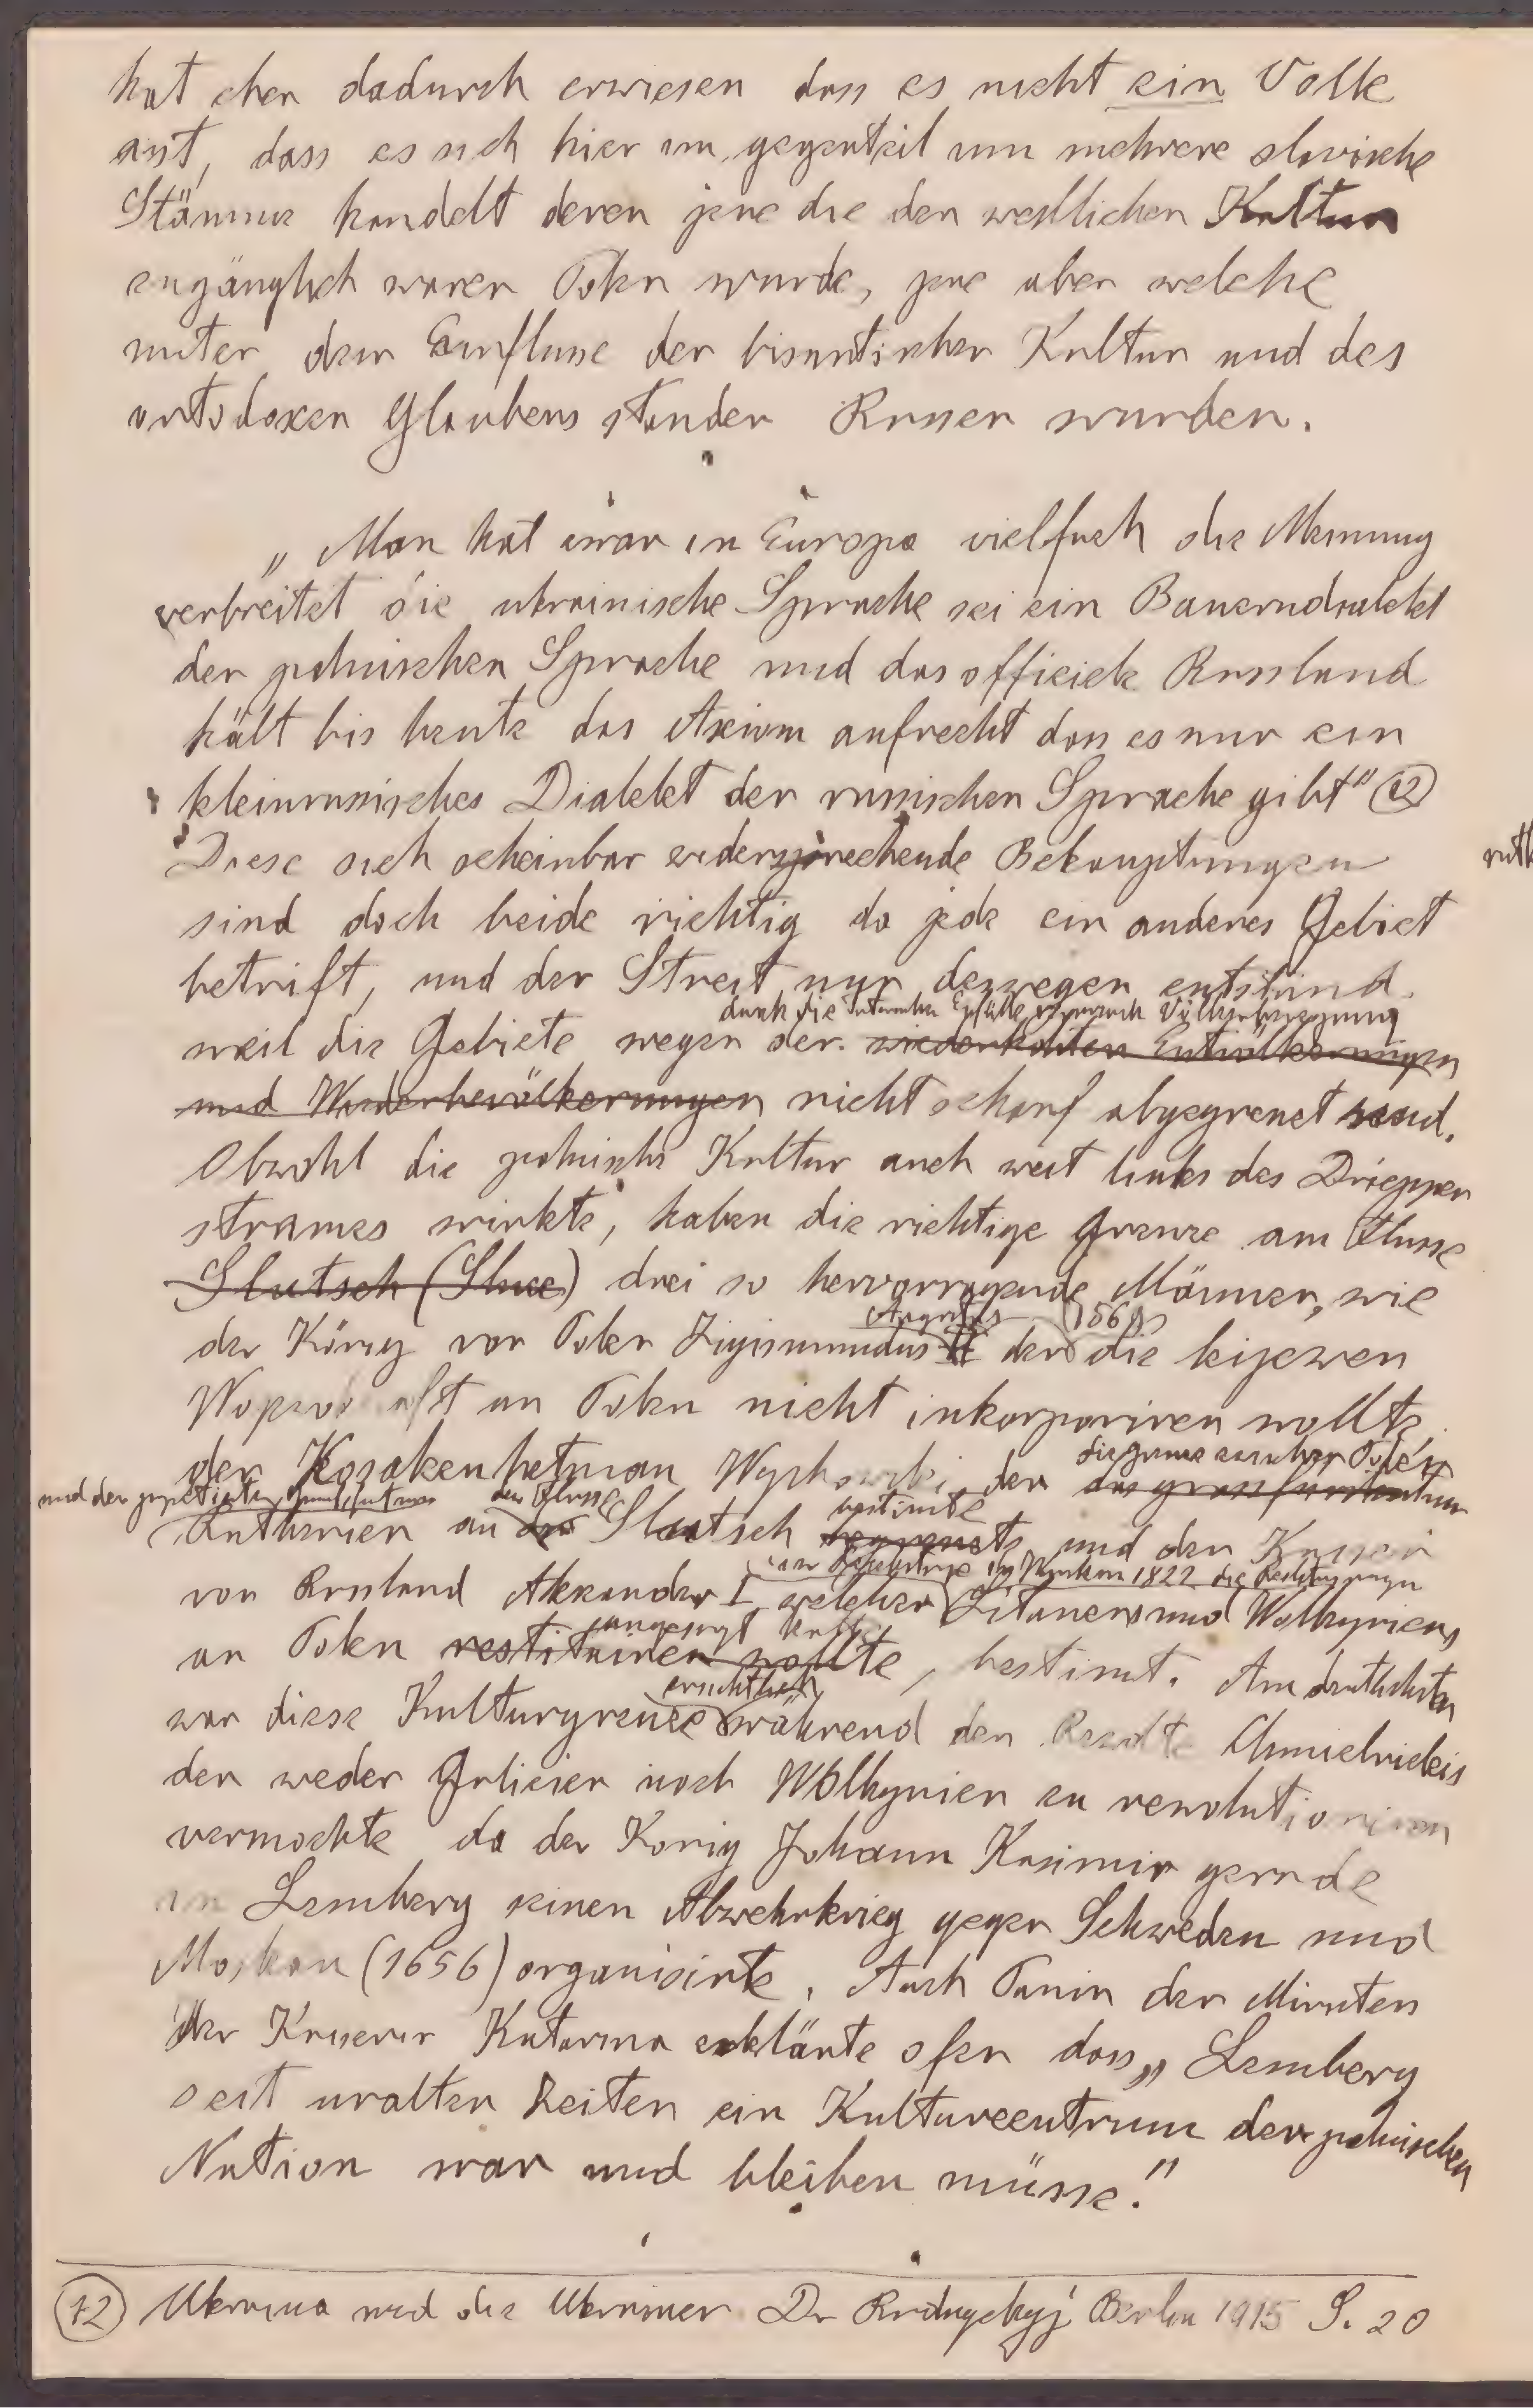 hat eben dadurch erwiesen dass es nicht ein Volk
ist, dass es sich hier im gegenteil um mehrere slavische
Stämme handelt deren jene die der westlichen Kultur
zugänglich waren Polen wurde, jene aber welche
unter dem Einflusse der bisantischer Kultur und des
ortodoxen Glaubens standen Russen wurden.
„Man hat zwar in Europa vielfach die Meinung
verbreitet die ukrainische Sprache sei ein Bauerndialekt
der polnischen Sprache und das officiele Russland
hält bis heute das Axiom aufrecht dass es nur ein
kleinrussisches Dialekt der russischen Sprache gibt" (12)
Diese sich scheinbar widersprechende Behauptungen
sind doch beide richtig da jede ein anderes Gebiet
betrift, und der Streit nur deswegen entstand
durch die Völkerbewegung
weil die Gebiete wegen der wiederholten Entvölkerungen
und Wiederbevölkerungen nicht scharf abgegrenzt sind.
Obwohl die polnische Kultur auch weit links des Dniepper
stromes wirkte, haben die richtige Grenze am Flusse
Slutsch (Sluce) drei so hervorragende Männer, wie
Augustus (1569)
der König von Polen Zigismundus II der die kijewer
an Polen nicht inkorporiren wollte
die Grenze zwischen Polen
der Kosakenhetman Wychowski der das grossfürstentum
und der dem Flusse bestimte
Ruthenien an der Slutsch begrenzte und der Kaiser
1822 die
von Russland Alexander I welcher Litauens und Wolhyniens
zugesagt hatte
an Polen restituiren wollte, bestimt. Am deutlichsten
ersichtlich
war diese Kulturgrenze während der Revolte Chmielnickis
der weder Galizien noch Wolhynien zu revolutioniren
vermochte da der König Johann Kasimir gerade
in Lemberg seinen Abwehrkrieg gegen Schweden und
Moskau (1656) organisirte. Auch Panin der Minister
der Kaiserin Katarina erklärte ofen dass „Lemberg
seit uralten Zeiten ein Kulturcentrum der polnischen
Nation war und bleiben müsse."
(12) Ukraina und die Ukrainer Dr Rudnyckyj Berlin 1915 S. 20